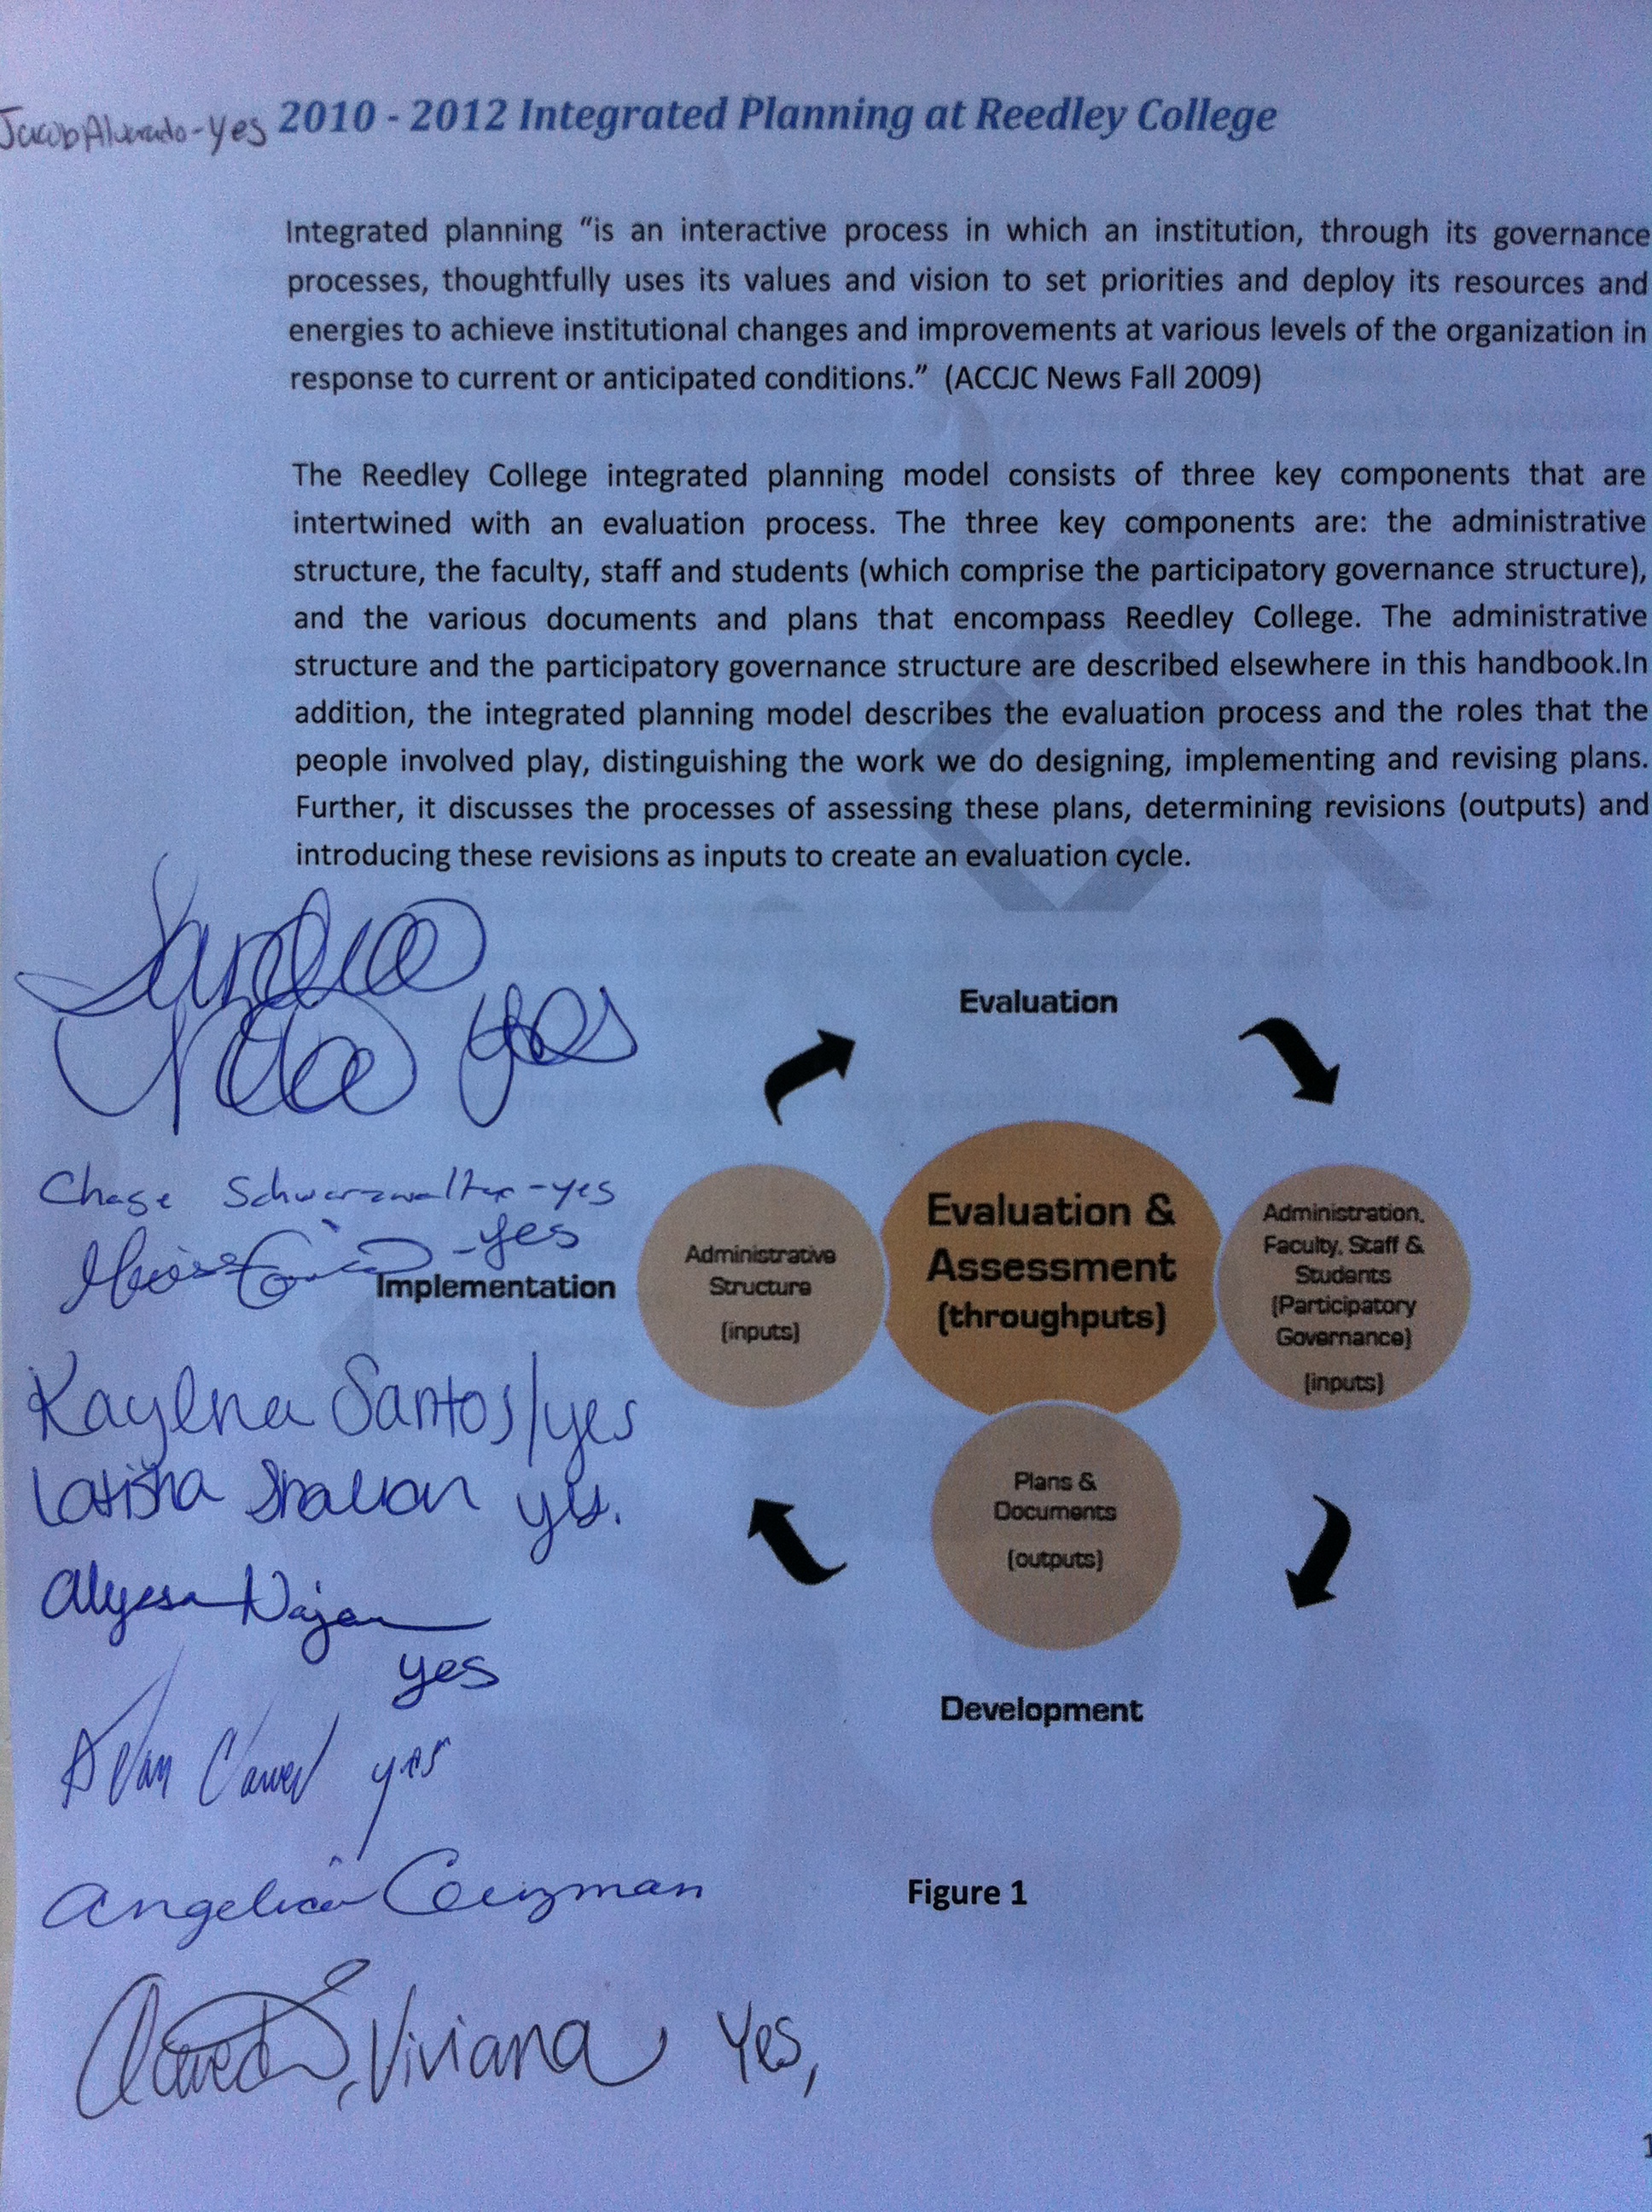 Jacob Alvarado-yes 2010 - 2012 Integrated Planning at Reedley College
Integrated planning “is an interactive process in which an institution, through its governance
processes, thoughtfully uses its values and vision to set priorities and deploy its resources and
energies to achieve institutional changes and improvements at various levels of the organization in
response to current or anticipated conditions.” (ACCJC News Fall 2009)
The Reedley College integrated planning model consists of three key components that are
intertwined with an evaluation process. The three key components are: the administrative
structure, the faculty, staff and students (which comprise the participatory governance structure),
and the various documents and plans that encompass Reedley College. The administrative
structure and the participatory governance structure are described elsewhere in this handbook.In
addition, the integrated planning model describes the evaluation process and the roles that the
people involved play, distinguishing the work we do designing, implementing and revising plans.
Further, it discusses the processes of assessing these plans, determining revisions (outputs) and
introducing these revisions as inputs to create an evaluation cycle.
yes
Evaluation
Chase Schwarzwalter-yes
-yes
Implementation
Administrative
Structure
(inputs)
Evaluation &
Assessment
(throughputs)
Administration,
Faculty, Staff &
Students
(Participatory
Governance)
(inputs)
Kaylena Santos/yes
Latisha yes.
Plans &
Documents
(outputs)
Alyssa Najar
yes
Development
yes
Angelica Guzman
Figure 1
Viviana Yes,
1